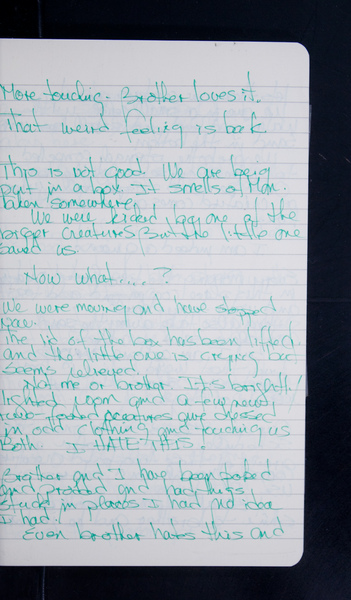 More touching. Brother loves it.
That weird feeling is back
This is not good. We are being
put in a box. It smells of Mom.
taken somewhere!
We were kicked by one of the
bigger creatures But the little one
saved us.
Now what....?
We were moving and have stopped
now.
The lid of the box has been lifted
and the little one is crying but
seems relieved.
Not me or brother. It is brightly
lighted room and a few new,
two-footed creatures are dressed
in odd clothing and touching us
Both. I HATE THIS!
Brother and I have been poked
and prodded and had things
stuck in places I had no idea
I had!
Even brother hates this and